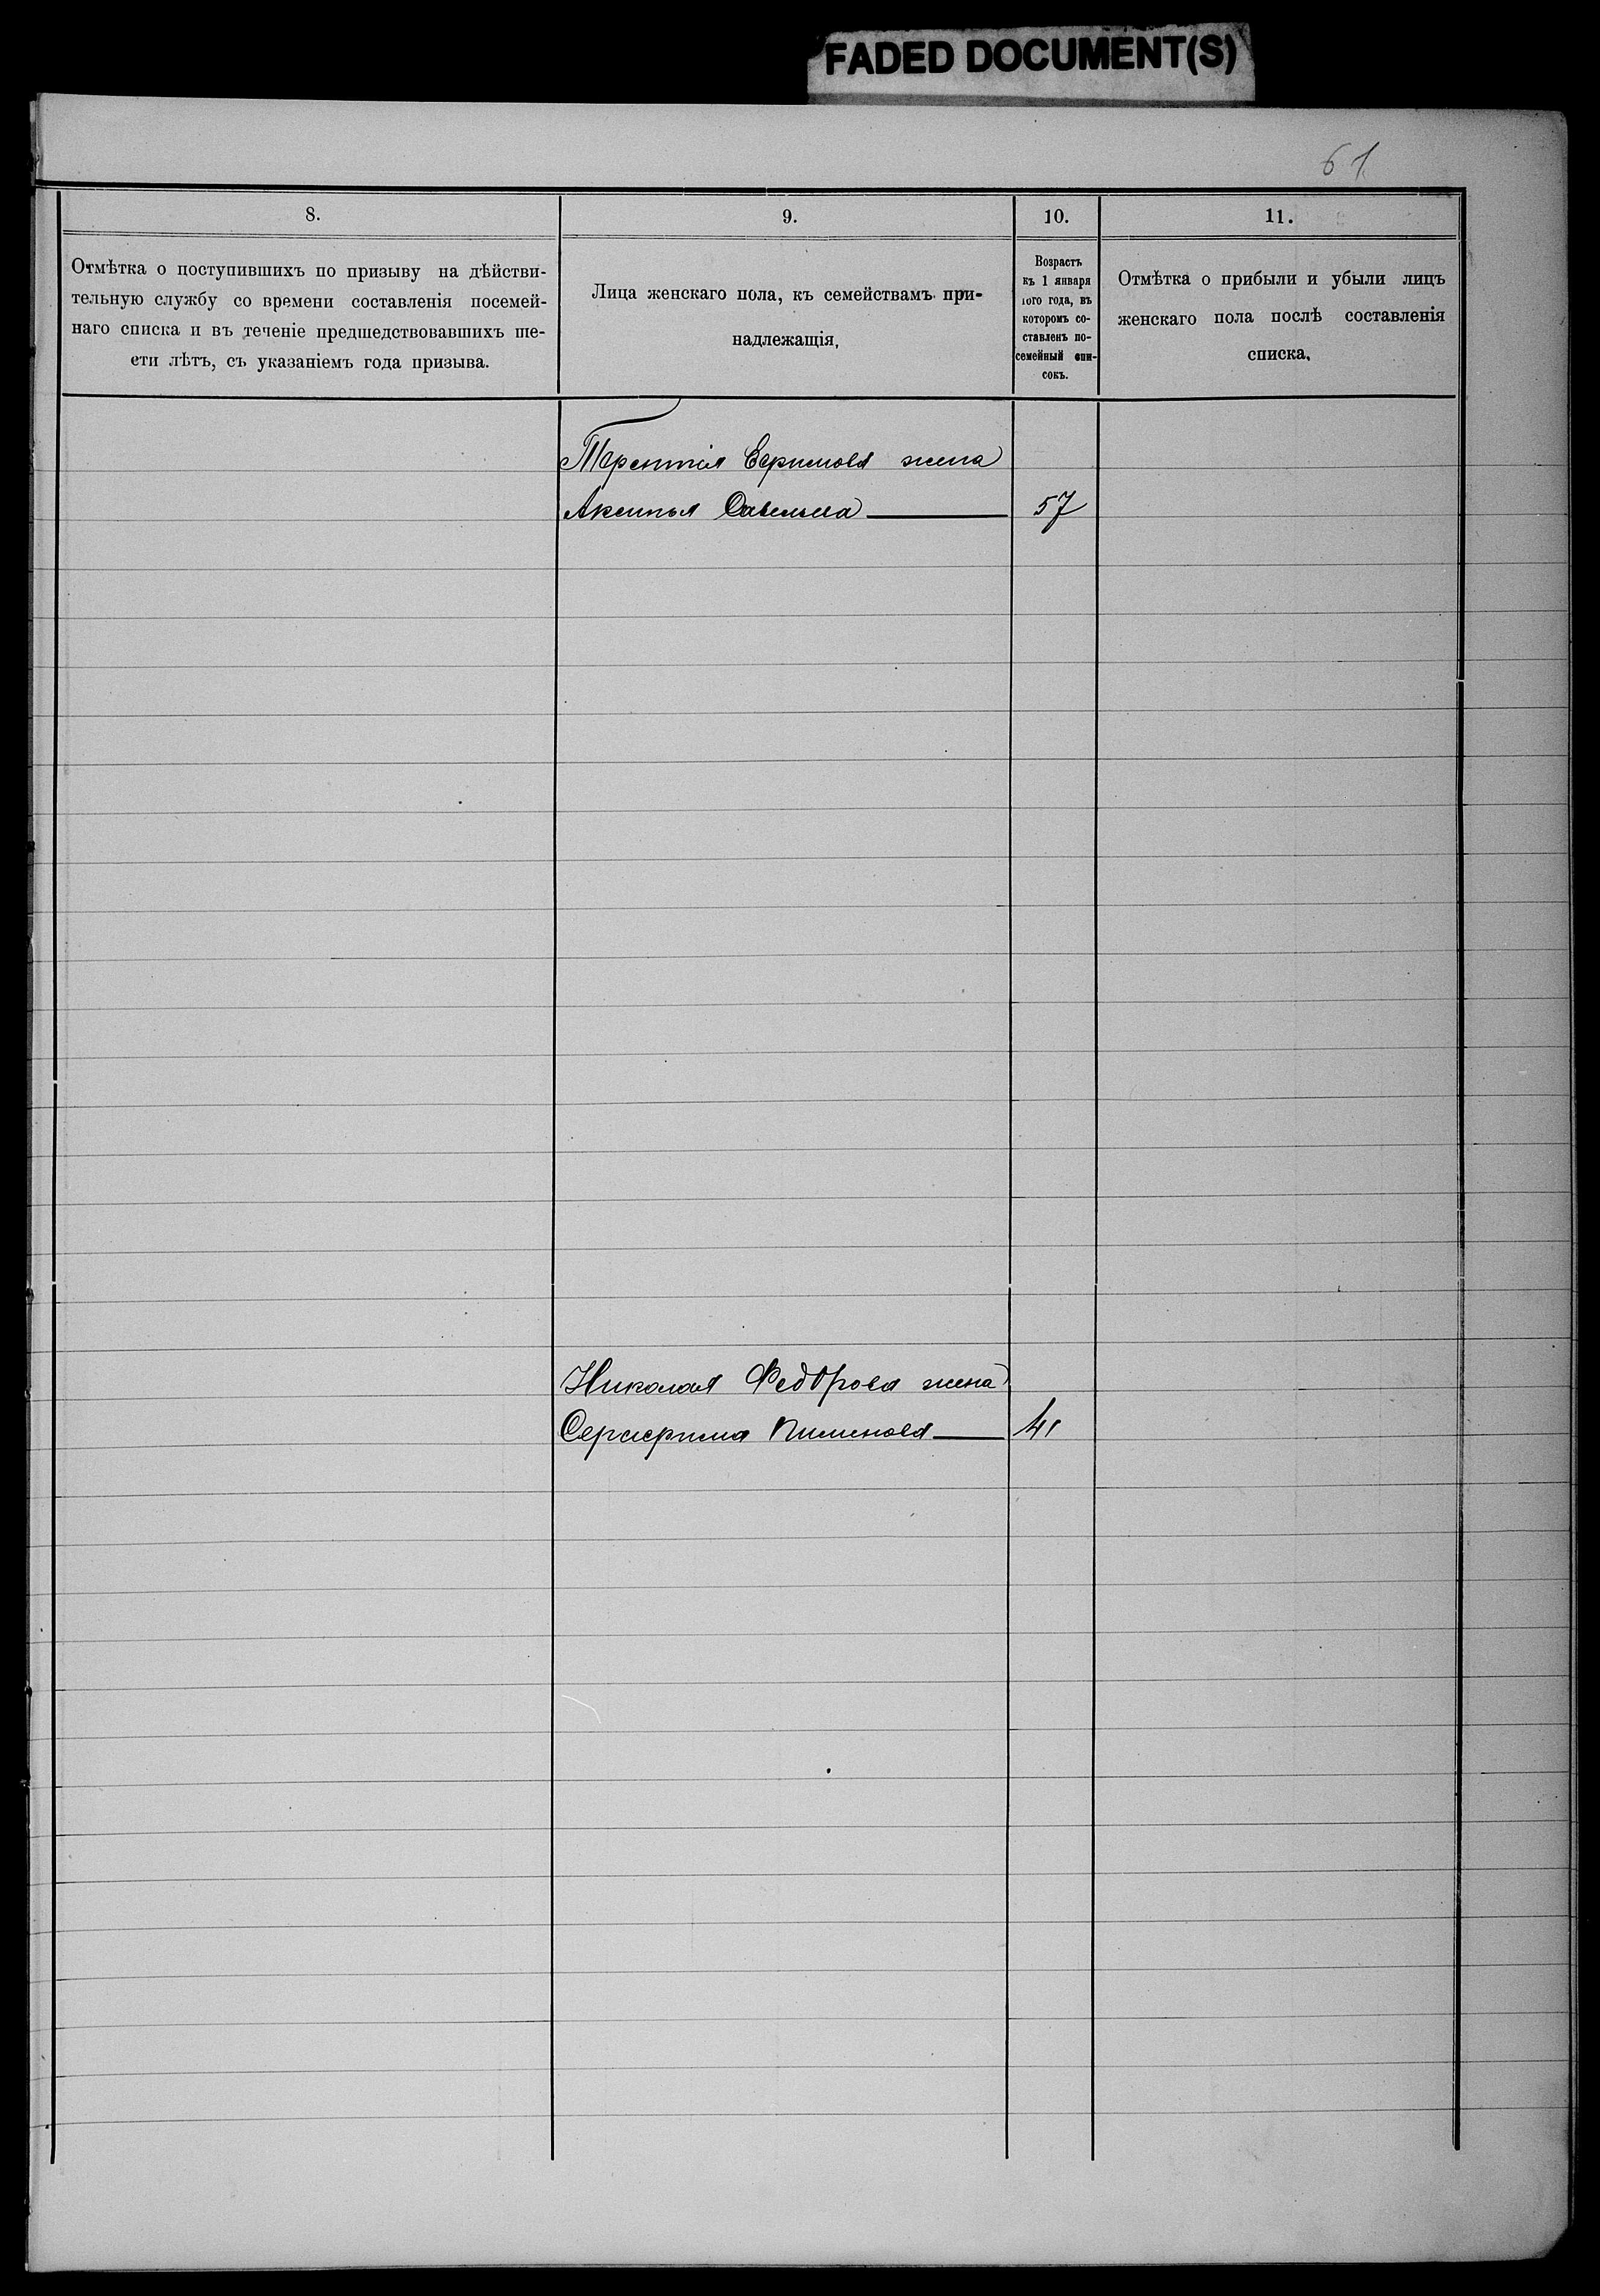 FADED DOCUMENT(S)
61
8.
9.
10.
11.
Отмѣтка о поступившихъ по призыву на дѣйстви-
тельную службу со времени составленія посемей-
наго списка и въ теченіе предшедствовавшихъ ше-
сти лѣтъ, съ указаніемъ года призыва.
Лица женскаго пола, къ семействамъ при-
надлежащія,
Возрастъ
къ 1 января
того года, въ
которомъ со-
ставленъ по-
семейный спи-
сокъ.
Отмѣтка о прибыли и убыли лицъ
женскаго пола послѣ составленія
списка.
Терентія Ефимова жена
Аксинья Савельева 57
Николая Федорова жена
Серафима Пименова 41